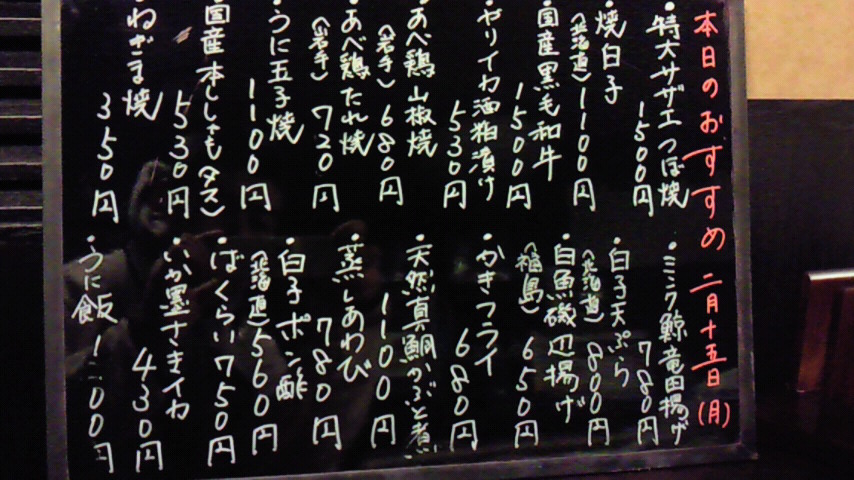 本日のおすすめ 二月十五日(月)
・特大サザエつぼ焼
1500円
・焼白子
(北海道)1100円
・国産黒毛和牛
1500円
・ヤリイカ酒粕漬け
530円
・あべ鶏山椒焼
(岩手)680円
・あべ鶏たれ焼
(岩手)720円
・うに玉子焼
1100円
・国産本ししゃも(オス)
530円
・ねぎま焼
350円
・ミンク鯨竜田揚げ
780円
・白子天ぷら
(北海道)800円
・白魚磯辺揚げ
(福島)650円
・かきフライ
680円
・天然真鯛かぶと煮
1100円
・蒸しあわび
780円
・白子ポン酢
(北海道)560円
・ばくらい750円
・いか墨さきイカ
430円
・うに飯